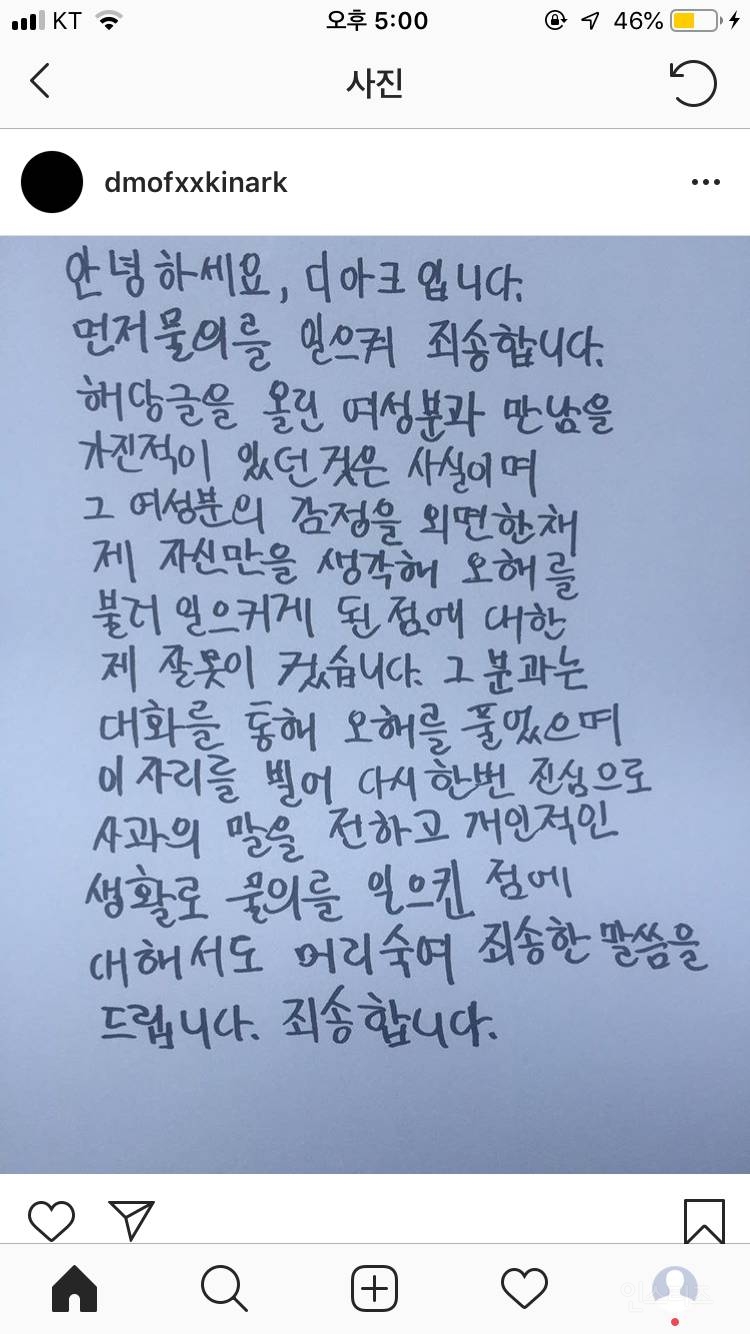 KT 오후 5:00 46%
사진
dmofxxkinark
안녕하세요, 디아크입니다.
먼저 물의를 일으켜 죄송합니다.
해당글을 올린 여성분과 만남을
가진적이 있던것은 사실이며
그 여성분의 감정을 외면한채
제 자신만을 생각해 오해를
불러 일으키게 된 점에 대한
제 잘못이 컸습니다. 그 분과는
대화를 통해 오해를 풀었으며
이 자리를 빌어 다시 한번 진심으로
사과의 말을 전하고 개인적인
생활로 물의를 일으킨 점에
대해서도 머리숙여 죄송한 말씀을
드립니다. 죄송합니다.
인스티즈